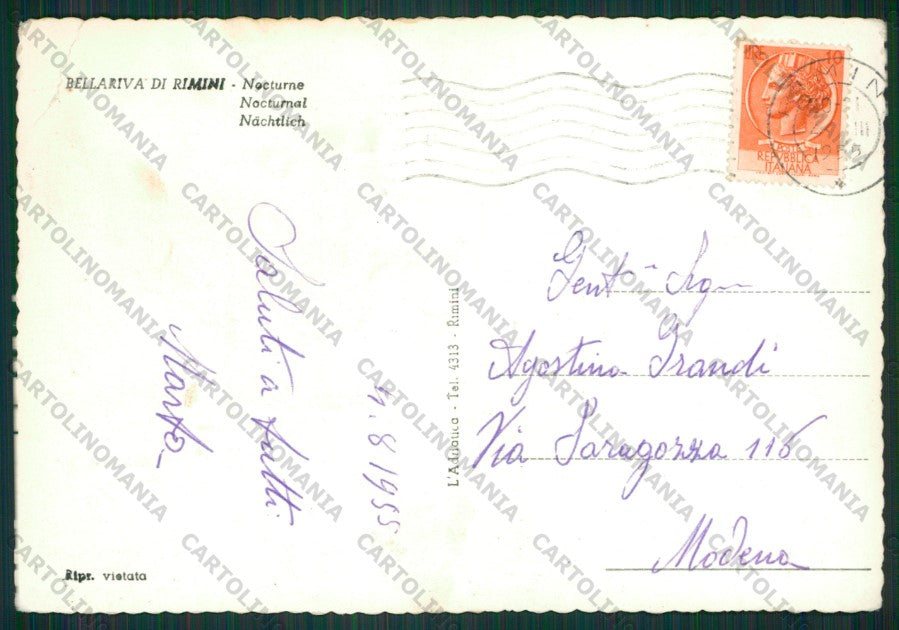 BELLARIVA DI RIMINI - Nocturne
Nocturnal
Nächtlich
Saluti a tutti
Marta
4.8 1955
Ripr. vietata
L'Adriatica - Tel. 4313 - Rimini
10
REPUBBLICA
ITALIANA
Gent Sig
Agostino Grandi
Via Saragozza 116
Modena
CARTOLINOMANIA